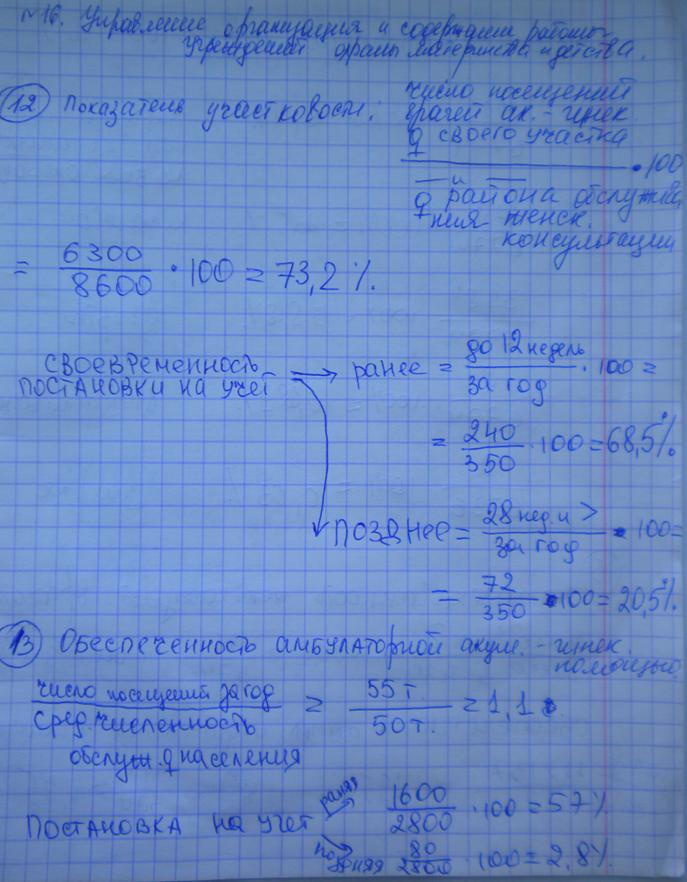 №16. Управление организация и содержание работы
учреждений охраны материнства и детства.
12 Показатель участковости: число посещений
врачей ак.-гинек.
♀ своего участка
—"— · 100
♀ района обслужива
ния женск.
консультации
= 6300/8600 · 100 = 73,2 %.
своевременность
постановки на учет → ранее = до 12 недель/за год · 100 =
= 240/350 · 100 = 68,5%
позднее = 28 нед. и >/за год · 100 =
= 72/350 · 100 = 20,5%
13 Обеспеченность амбулаторной акуш.-гинек.
помощью
число посещений за год/сред. численность = 55 т./50 т. = 1,1
обслуж. ♀ населения
постановка на учет ранняя 1600/2800 · 100 = 57 %
поздняя 80/2800 · 100 = 2,8%